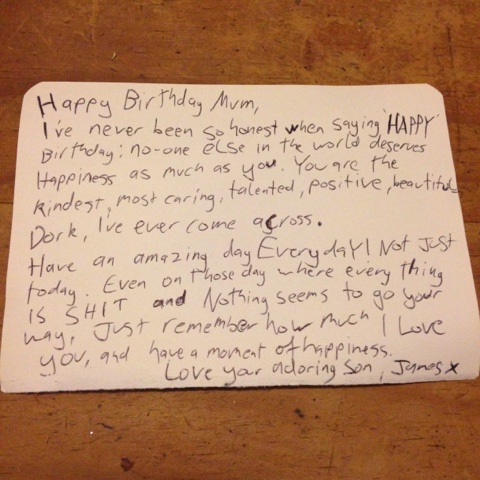 Happy Birthday Mum,
I've never been so honest when saying 'HAPPY'
Birthday; no-one else in the world deserves
Happiness as much as you. You are the
kindest, most caring, talented, positive, beautiful
Dork, I've ever come across.
Have an amazing day Everyday! Not Just
today. Even on those day where every thing
is SHIT and Nothing seems to go your
way, Just remember how much I Love
you, and have a moment of happiness.
Love your adoring Son, James x